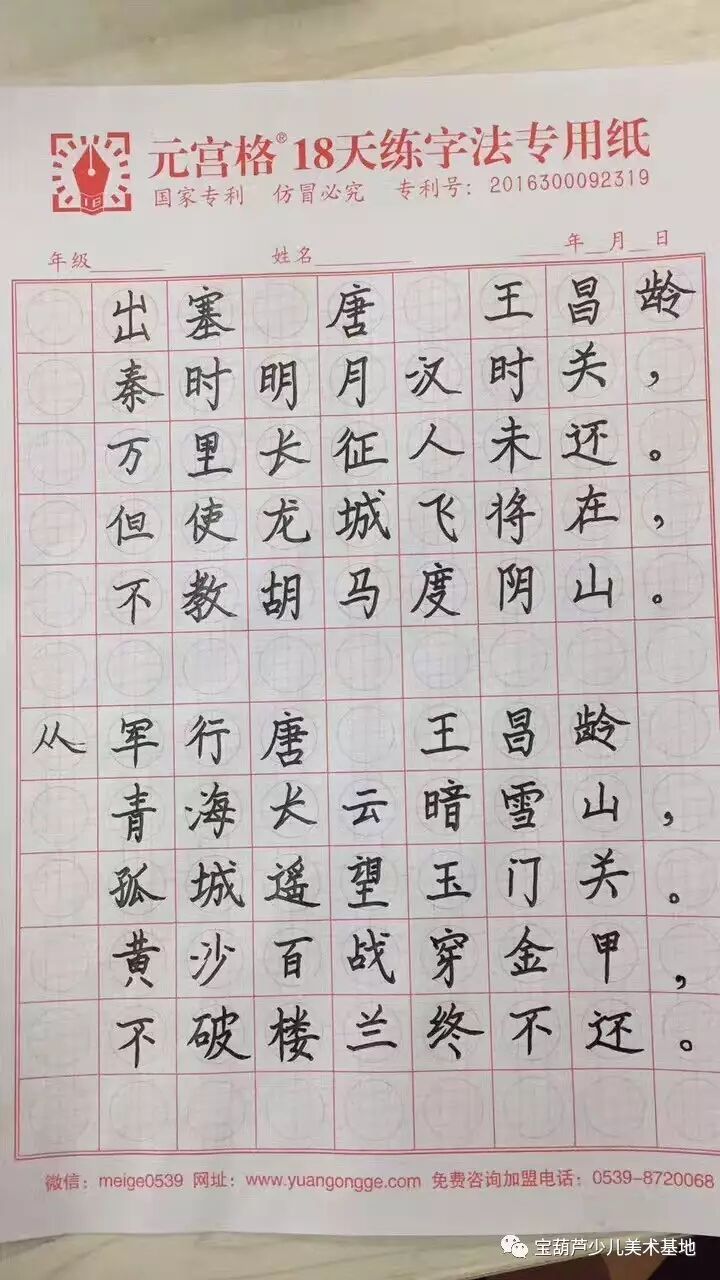 元宫格® 18天练字法专用纸
国家专利 仿冒必究 专利号：2016300092319
年级 姓名 年 月 日
出塞 唐 王昌龄
秦时明月汉时关，
万里长征人未还。
但使龙城飞将在，
不教胡马度阴山。
从军行唐 王昌龄
青海长云暗雪山，
孤城遥望玉门关。
黄沙百战穿金甲，
不破楼兰终不还。
微信：meige0539 网址：www.yuangongge.com 免费咨询加盟电话：0539-8720068
宝葫芦少儿美术基地